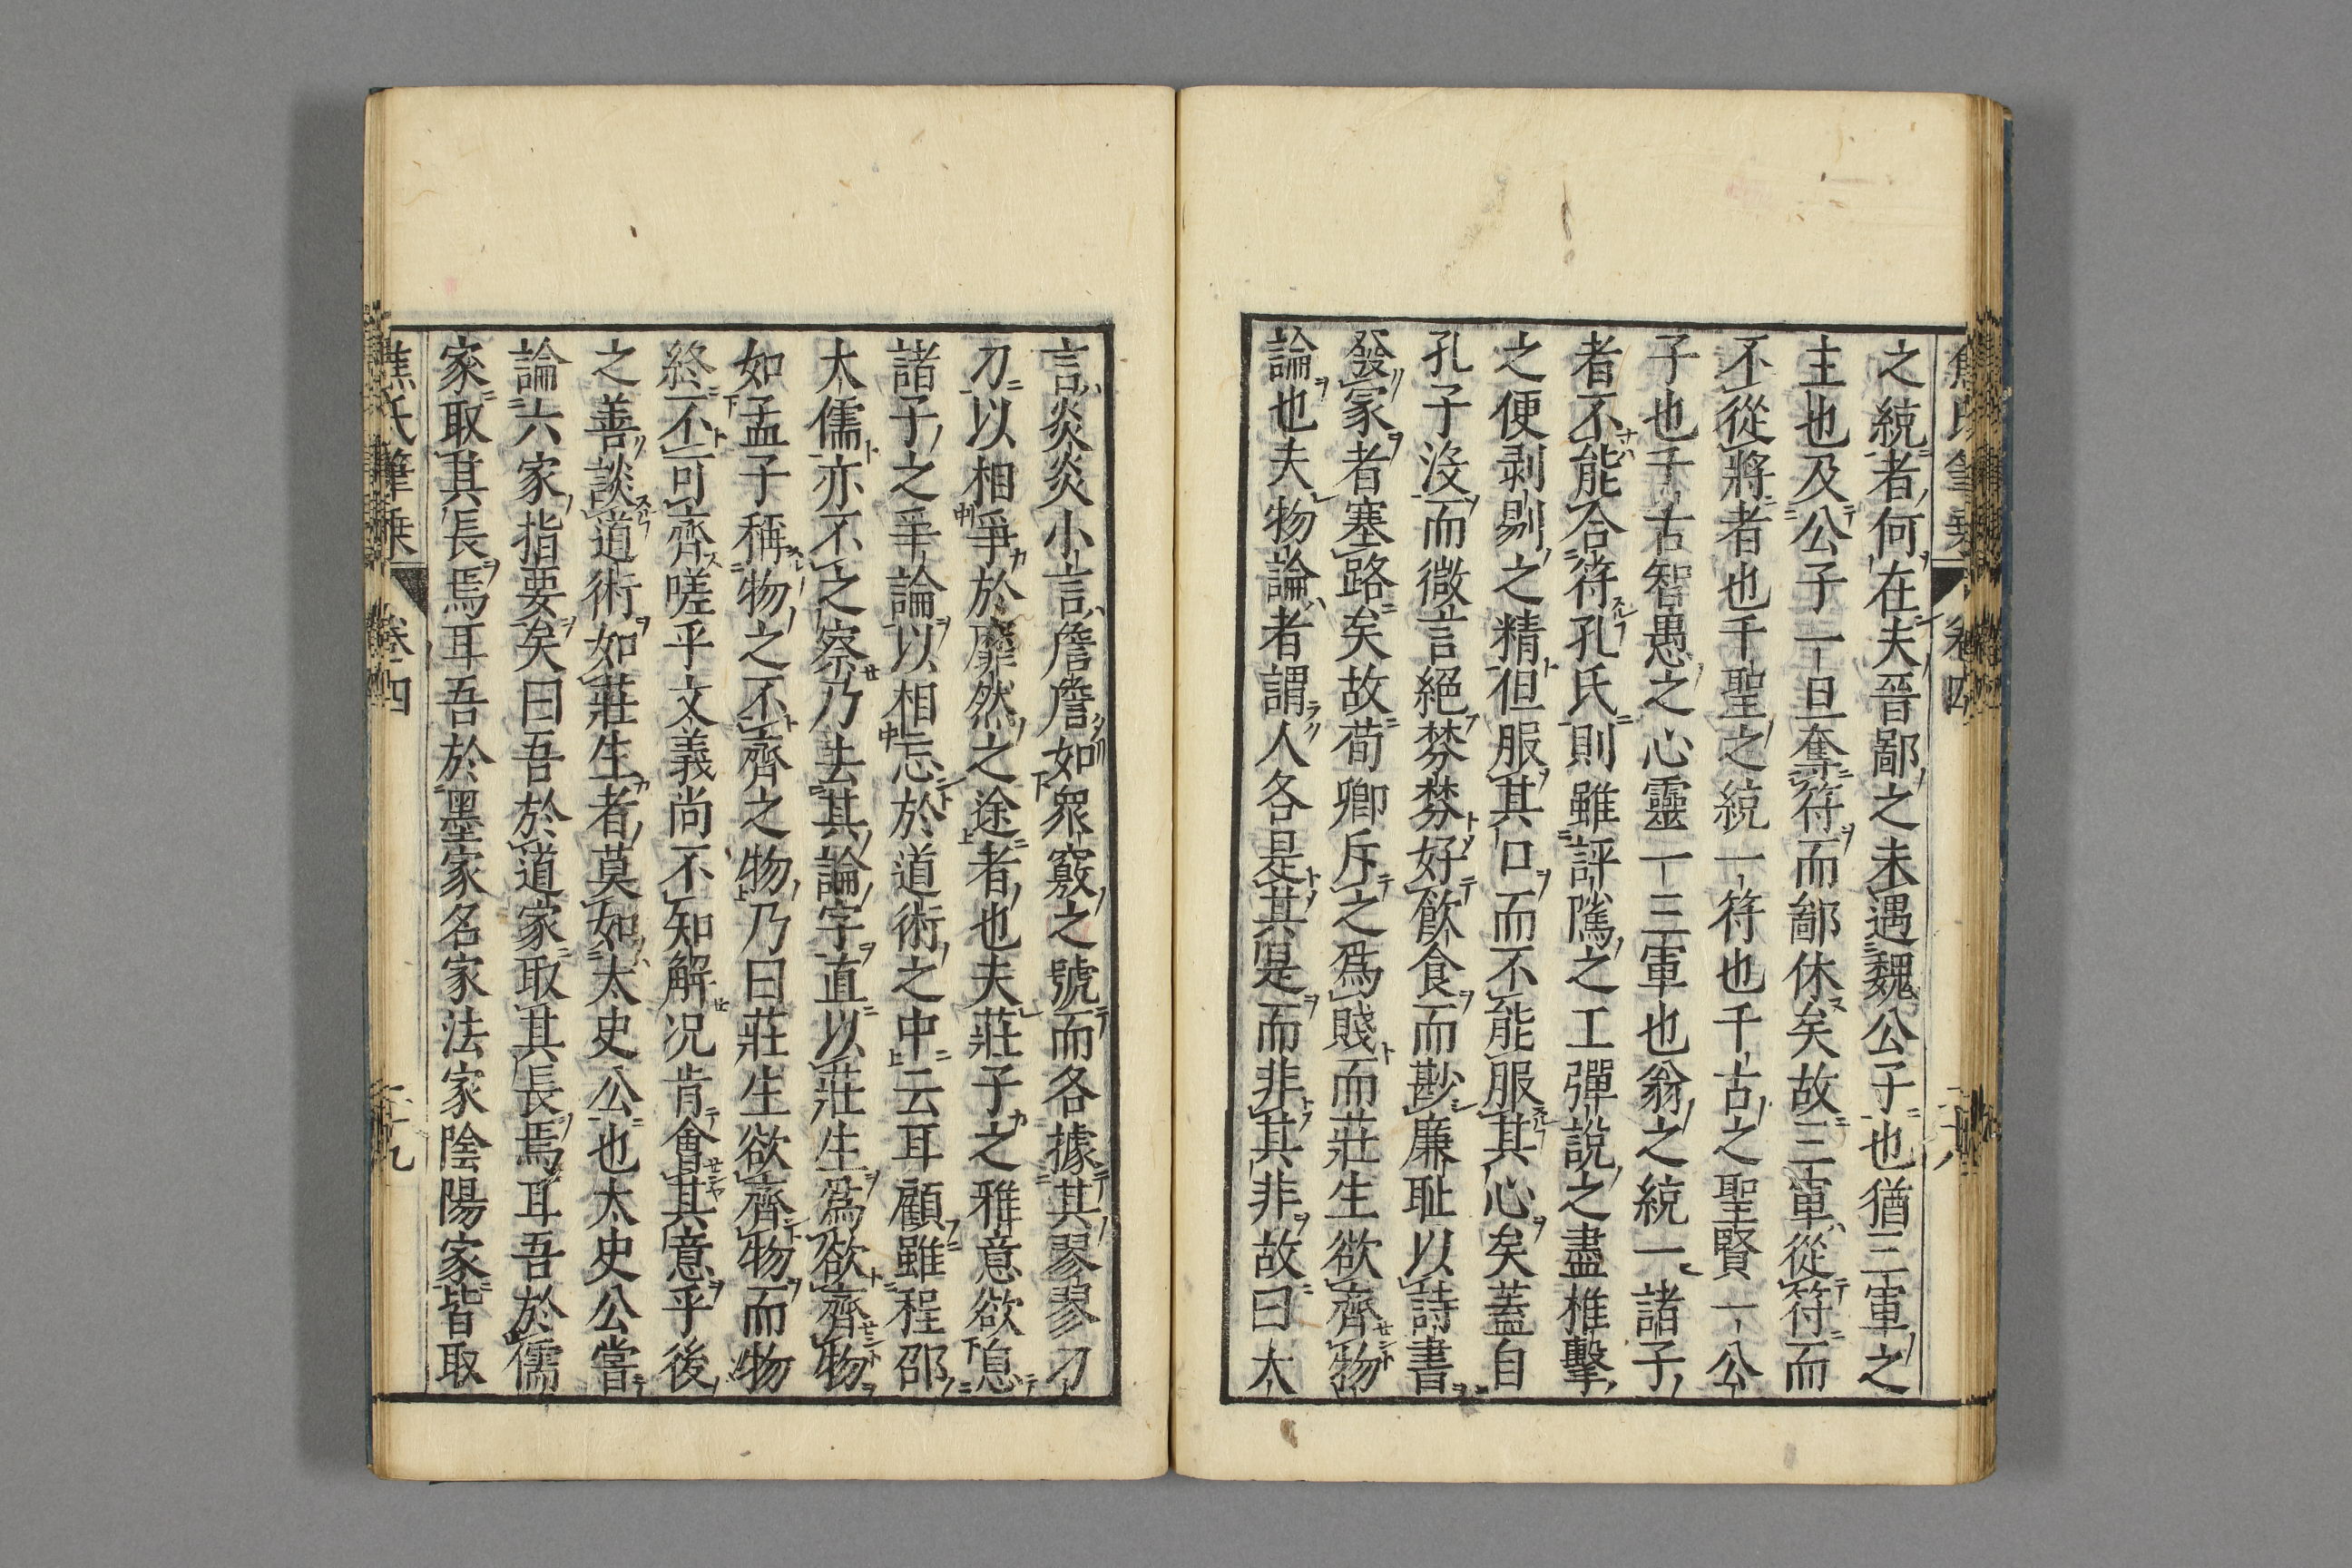 之統者何在夫晉鄙之未遇魏公子也猶三軍之
主也及公子一旦奪符而鄙休矣故三軍從符而
不從將者也千聖之統一符也千古之聖賢一公
子也千古智愚之心靈一三軍也翁之統一諸子
者不能合符孔氏則雖評隲之工彈說之盡椎擊
之便剥剔之精但服其口而不能服其心矣蓋自
孔子沒而微言絕棼棼好飲食而尠廉耻以詩書
發冢者塞路矣故荀卿斥之爲賤而莊生欲齊物
論也夫物論者謂人各是其是而非其非故曰大
言炎炎小言詹詹如眾竅之號而各據其翏翏刁
刀以相爭於靡然之途者也夫莊子之雅意欲息
諸子之爭論以相忘於道術之中云耳顧雖程邵
大儒亦不之察乃去其論字直以莊生爲欲齊物
如孟子稱物之不齊之物乃曰莊生欲齊物而物
終不可齊嗟乎文義尚不知解况肯會其意乎後
之善談道術如莊生者莫如太史公也太史公當
論六家指要矣曰吾於道家取其長焉耳吾於儒
家取其長焉耳吾於墨家名家法家陰陽家皆取
焦氏筆乗 卷四